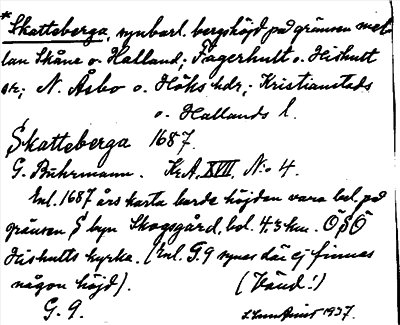 *Skatteberga, synbarl. bergshöjd på gränsen mel-
lan Skåne o. Halland; Fagerhult o. Hishult
sr; N. Åsbo o. Höks hdr; Kristianstads
o. Hallands l.
Skatteberga 1687.
G. Buhrmann. KrA, XVIII, N:o 4.
Enl. 1687 års karta borde höjden vara bel. på
gränsen S byn Skogsgård, bel. 4.3 km. ÖSÖ
Hishults kyrka. (Enl. G. 9 synes där ej finnas
någon höjd). (Vänd!)
G. 9. 1937.